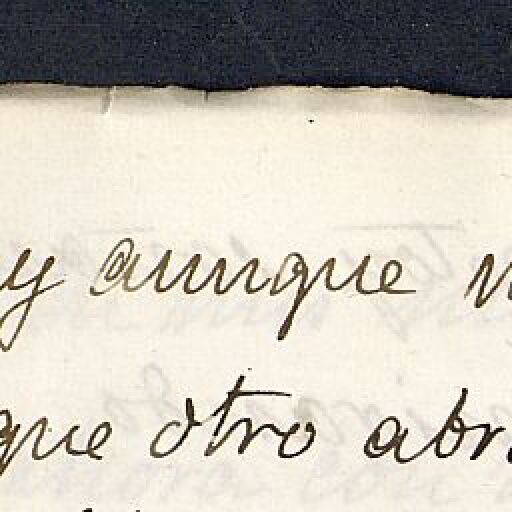 y aunque
que otro